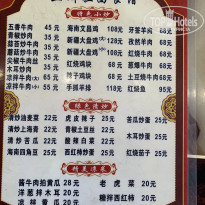 精美小炒
五香牛肉 45元
海南文昌鸡 68元
芽荟羊肉 48元
青椒炒肉 35元
新疆大盘鸡(小) 68元
木耳炒肉 38元
蒜苔炒牛肉 45元
新疆大盘鸡(大) 128元
孜然羊肉 68元
芹菜炒牛肉 45元
红烧鸡块 68元
红焖羊肉 68元
尖椒牛肉丝 45元
红烧排骨 68元
葱爆羊肉 68元
凉拌牛肉(小) 45元
红烧牛肉 68元
土豆烧牛肉 68元
凉拌牛肉(大) 65元
手撕羊肉 98元
红烧鱼 95元
绿色清炒
清炒油麦菜 22元
虎皮辣子 28元
苦瓜炒蛋 28元
清炒上海青 22元
青椒土豆丝 22元
木耳炒蛋 28元
清炒苦瓜 22元
醋辣白菜 22元
韭菜炒蛋 28元
海南四角豆 28元
西红柿炒蛋 28元
红烧茄子 25元
精美凉菜
酱牛肉拍黄瓜 28元
老虎菜 20元
洋葱拌木耳 20元
糖拌西红柿 20元
凉拌黄瓜 20元